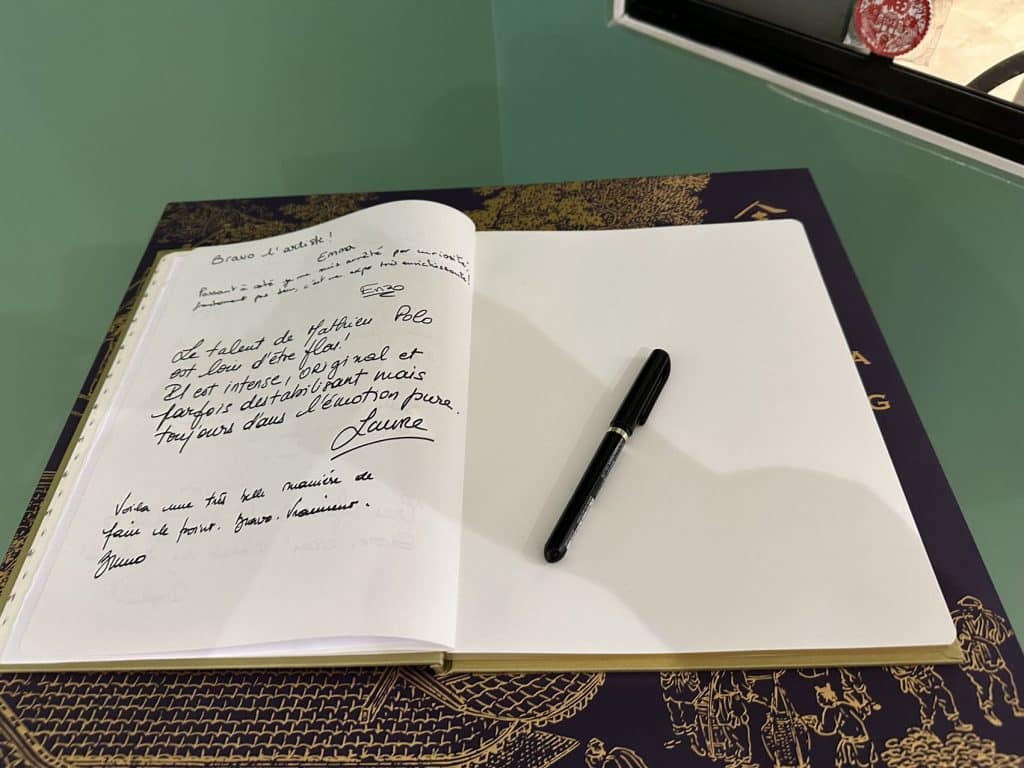 Bravo l'artiste !
Emma
Passant à côté je me suis arrêté par curiosité,
, c'est une expo très enrichissante !
Enzo
Le talent de Mathieu Polo
est loin d'être flou !
Il est intense, original et
parfois destabilisant mais
toujours dans l'émotion pure.
Laure
Voilà une très belle manière de
faire le point. Bravo. Vraiment.
Bruno
A
G